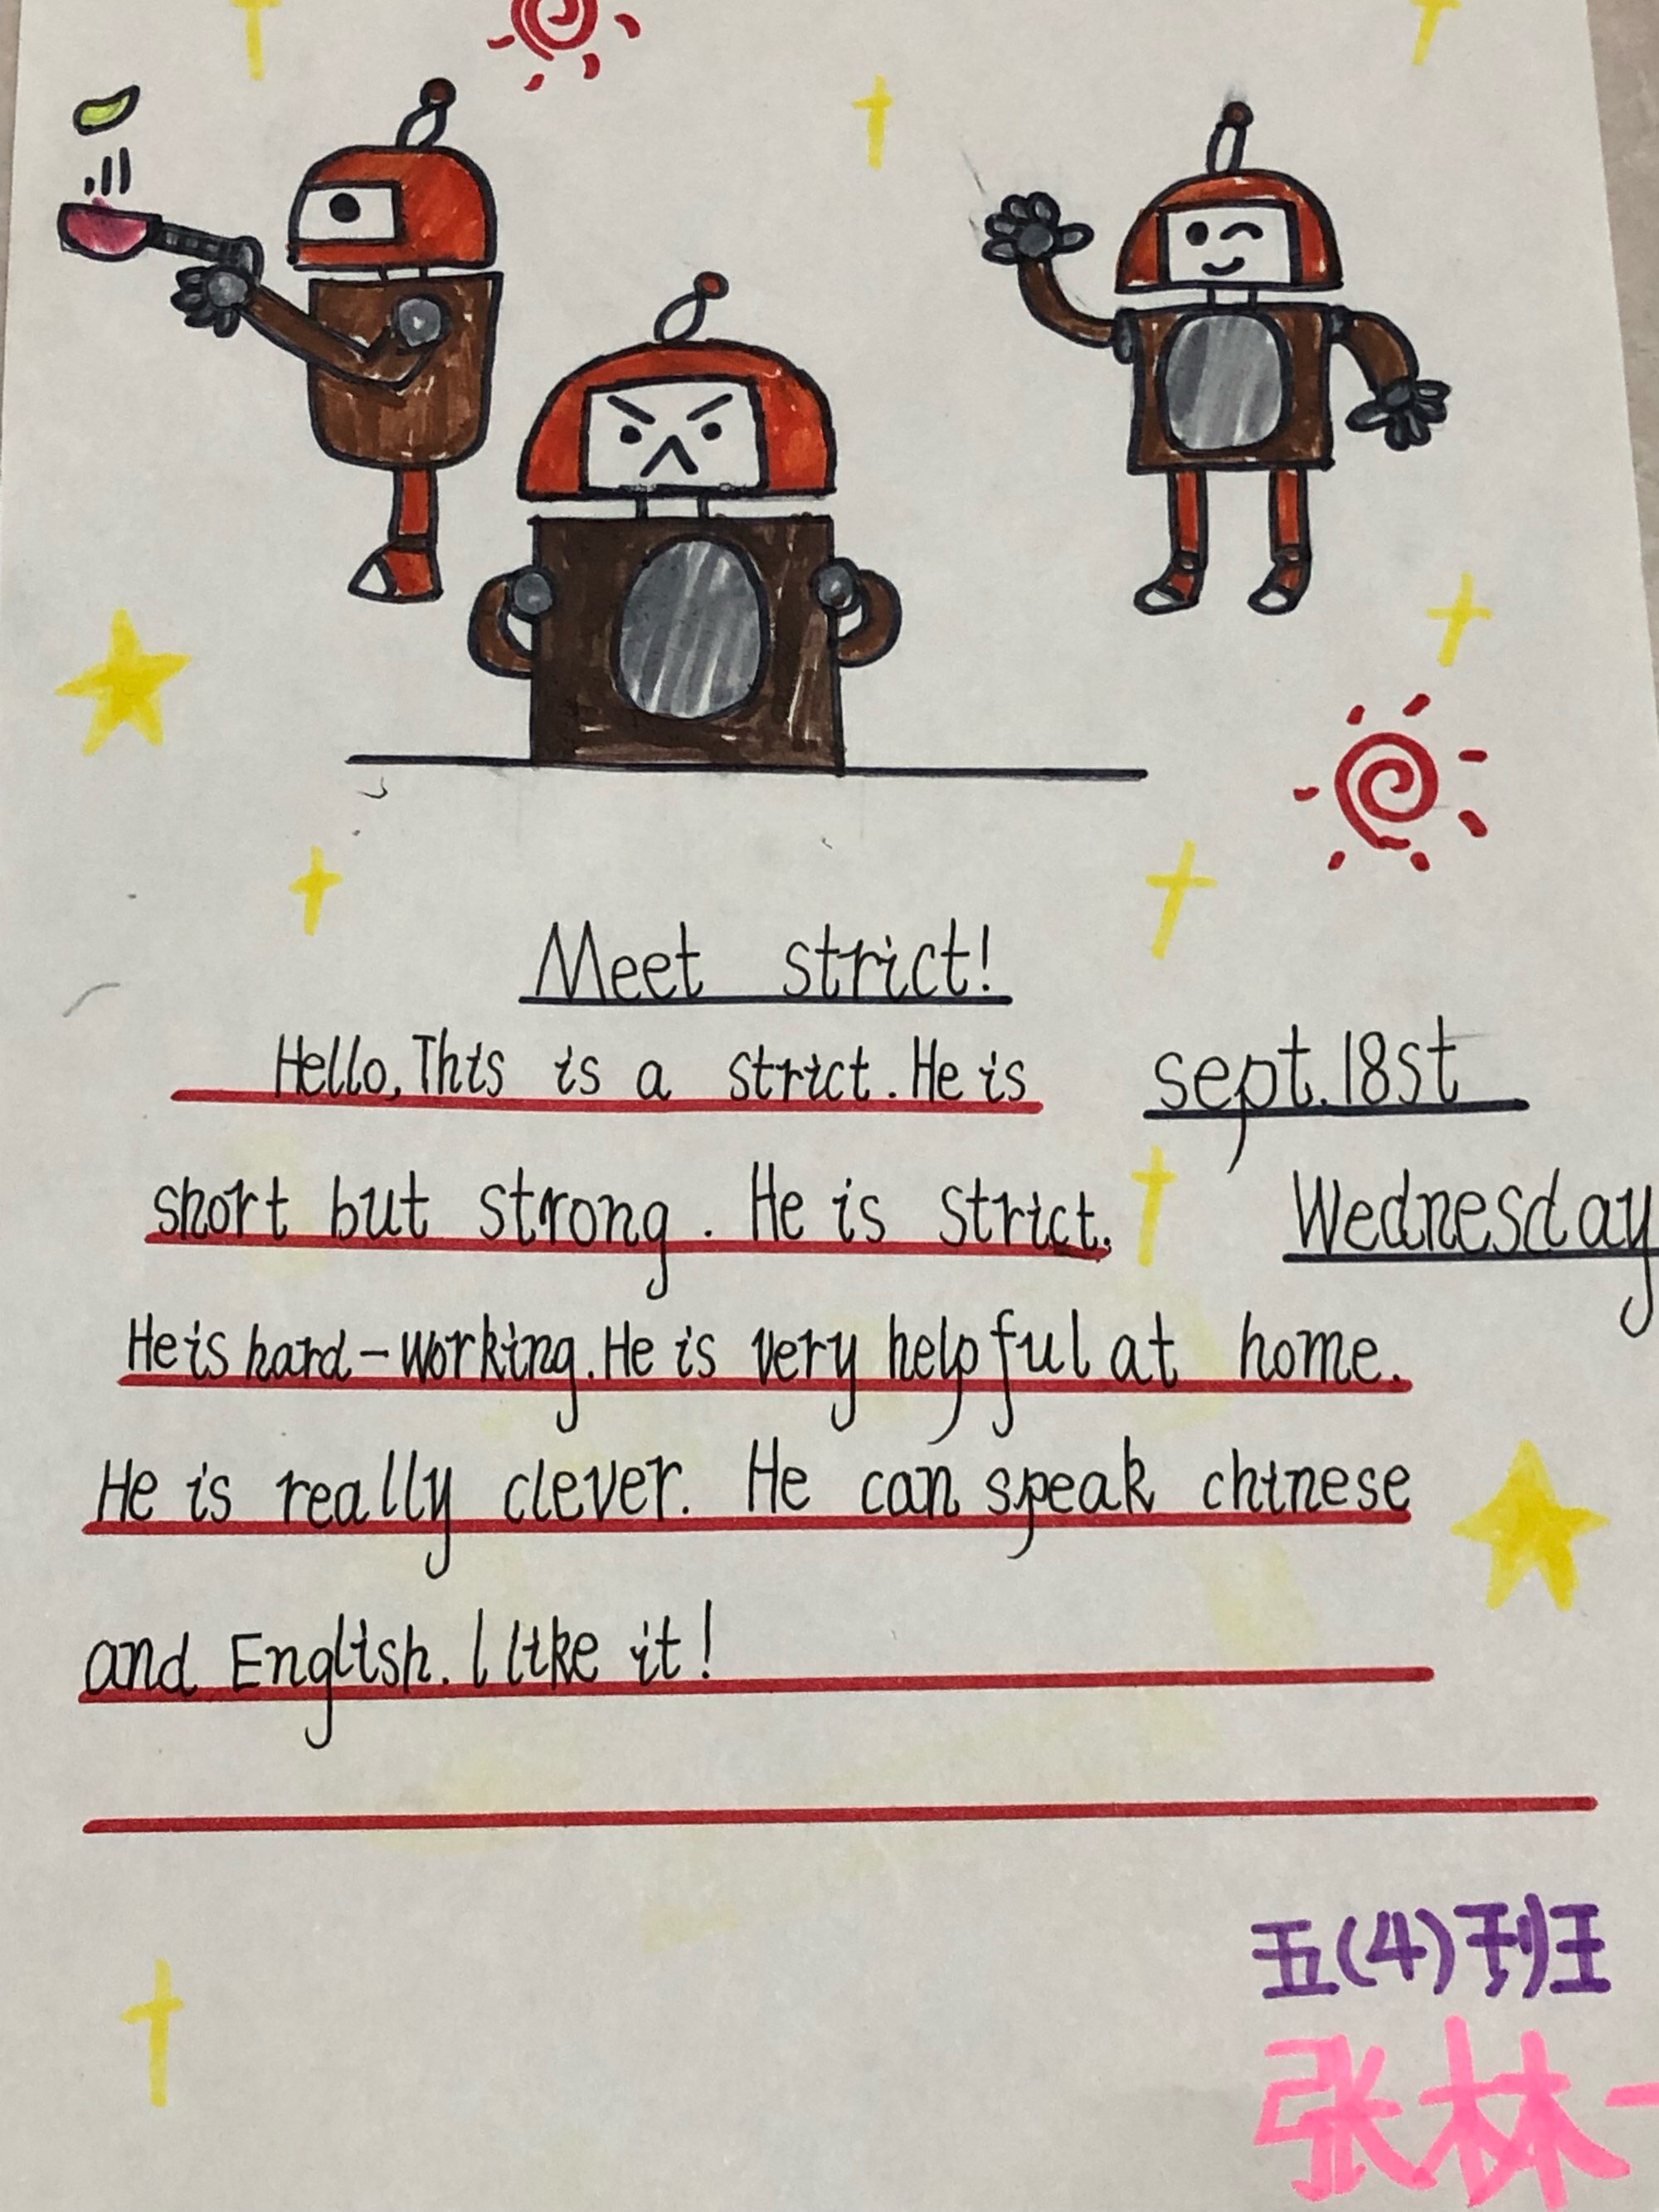 Meet strict!
Hello, This is a strict. He is
sept. 18st
short but strong. He is strict.
Wednesday
He is hard-working. He is very helpful at home.
He is really clever. He can speak chinese
and English. I like it!
五(4)班
张林一